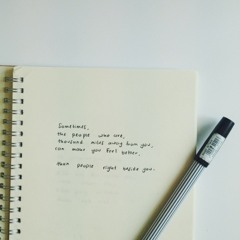 Sometimes,
the people who are,
thousand miles away from you,
can make you feel better,
than people right beside you.